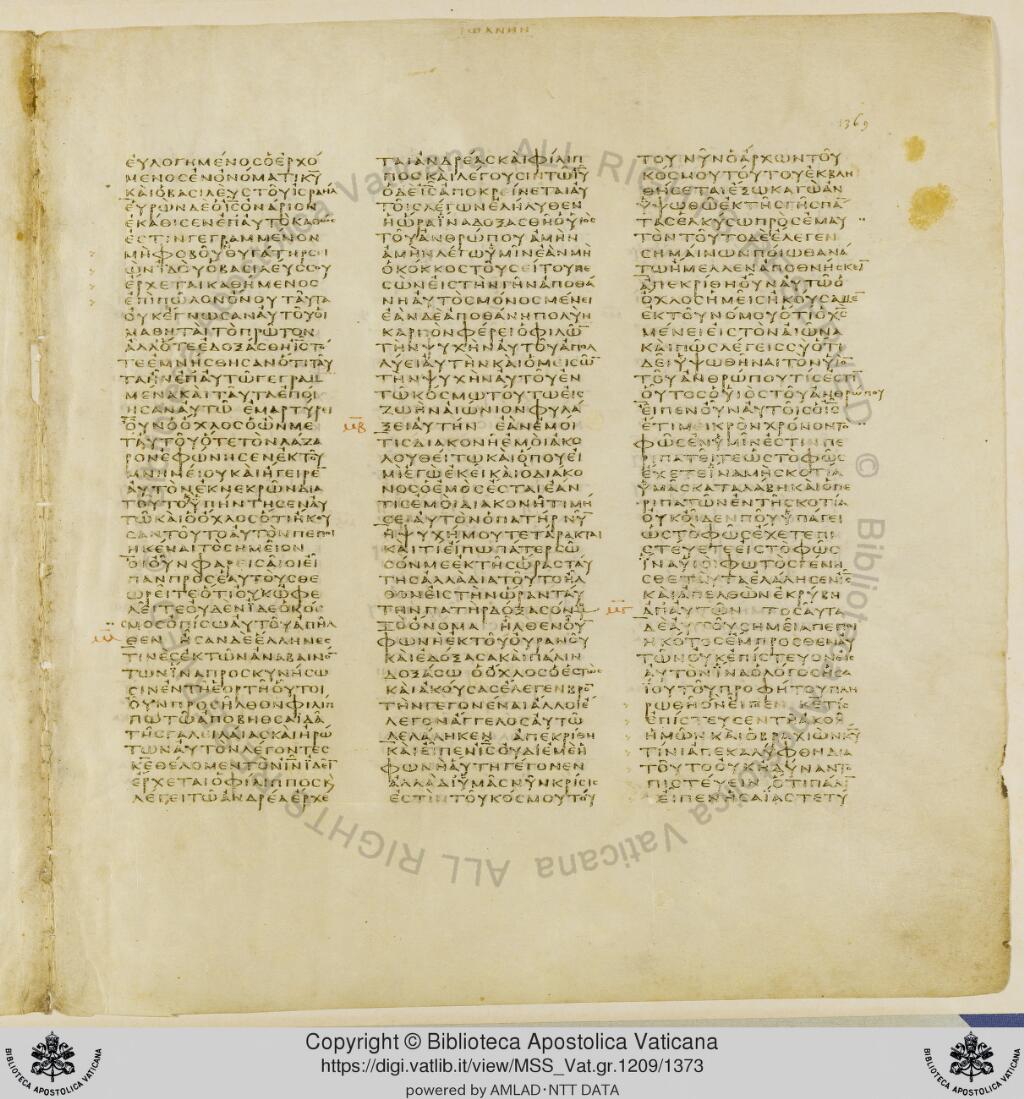 ΙΩΑΝΗΝ
1369
ΕΥΛΟΓΗΜΕΝΟΣΟΕΡΧΟ
ΜΕΝΟΣΕΝΟΝΟΜΑΤΙΚΥ
ΚΑΙΟΒΑΣΙΛΕΥΣΤΟΥΙΣΡΑΗΛ
ΕΥΡΩΝΔΕΟΙΣΟΝΑΡΙΟΝ
ΕΚΑΘΙΣΕΝΕΠΑΥΤΟΚΑΘΩΣ
ΕΣΤΙΝΓΕΓΡΑΜΜΕΝΟΝ
ΜΗΦΟΒΟΥΘΥΓΑΤΗΡΣΕΙ
ΩΝΙΔΟΥΟΒΑΣΙΛΕΥΣΣΟΥ
ΕΡΧΕΤΑΙΚΑΘΗΜΕΝΟΣ
ΕΠΙΠΩΛΟΝΟΝΟΥΤΑΥΤΑ
ΟΥΚΕΓΝΩΣΑΝΑΥΤΟΥΟΙ
ΜΑΘΗΤΑΙΤΟΠΡΩΤΟΝ
ΑΛΛΟΤΕΕΔΟΞΑΣΘΗΙΣΤΟ
ΤΕΕΜΝΗΣΘΗΣΑΝΟΤΙΤΑΥ
ΤΑΗΝΕΠΑΥΤΩΓΕΓΡΑΜ
ΜΕΝΑΚΑΙΤΑΥΤΑΕΠΟΙ
ΗΣΑΝΑΥΤΩ ΕΜΑΡΤΥΡΕΙ
ΟΥΝΟΟΧΛΟΣΟΩΝΜΕ
ΤΑΥΤΟΥΟΤΕΤΟΝΛΑΖΑ
ΡΟΝΕΦΩΝΗΣΕΝΕΚΤΟΥ
ΜΝΗΜΕΙΟΥΚΑΙΗΓΕΙΡΕ
ΑΥΤΟΝΕΚΝΕΚΡΩΝΔΙΑ
ΤΟΥΤΟΥΠΗΝΤΗΣΕΝΑΥ
ΤΩΚΑΙΟΟΧΛΟΣΟΤΙΗΚΟΥ
ΣΑΝΤΟΥΤΟΑΥΤΟΝΠΕΠΟΙ
ΗΚΕΝΑΙΤΟΣΗΜΕΙΟΝ
ΟΙΟΥΝΦΑΡΕΙΣΑΙΟΙΕΙ
ΠΑΝΠΡΟΣΕΑΥΤΟΥΣΘΕ
ΩΡΕΙΤΕΟΤΙΟΥΚΩΦΕ
ΛΕΙΤΕΟΥΔΕΝΙΔΕΟΚΟΣ
ΜΟΣΟΠΙΣΩΑΥΤΟΥΑΠΗΛ
ΘΕΝ ΗΣΑΝΔΕΕΛΛΗΝΕΣ
ΤΙΝΕΣΕΚΤΩΝΑΝΑΒΑΙΝΟ
ΤΩΝΙΝΑΠΡΟΣΚΥΝΗΣΩ
ΣΙΝΕΝΤΗΕΟΡΤΗΟΥΤΟΙ
ΟΥΝΠΡΟΣΗΛΘΟΝΦΙΛΙΠ
ΠΩΤΩΑΠΟΒΗΘΣΑΙΔΑ
ΤΗΣΓΑΛΕΙΛΑΙΑΣΚΑΙΗΡΩ
ΤΩΝΑΥΤΟΝΛΕΓΟΝΤΕΣ
ΚΕΘΕΛΟΜΕΝΤΟΝΙΝΙΔΕΙ
ΕΡΧΕΤΑΙΟΦΙΛΙΠΠΟΣΚ
ΛΕΓΕΙΤΩΑΝΔΡΕΑΕΡΧΕ
ΤΑΙΑΝΔΡΕΑΣΚΑΙΦΙΛΙΠ
ΠΟΣΚΑΙΛΕΓΟΥΣΙΝΤΩΙΥ
ΟΔΕΙΣΑΠΟΚΡΕΙΝΕΤΑΙΑΥ
ΤΟΙΣΛΕΓΩΝΕΛΗΛΥΘΕΝ
ΗΩΡΑΙΝΑΔΟΞΑΣΘΗΟΥΙΟΣ
ΤΟΥΑΝΘΡΩΠΟΥΑΜΗΝ
ΑΜΗΝΛΕΓΩΥΜΙΝΕΑΝΜΗ
ΟΚΟΚΚΟΣΤΟΥΣΕΙΤΟΥΠΕ
ΣΩΝΕΙΣΤΗΝΓΗΝΑΠΟΘΑ
ΝΗΑΥΤΟΣΜΟΝΟΣΜΕΝΕΙ
ΕΑΝΔΕΑΠΟΘΑΝΗΠΟΛΥΝ
ΚΑΡΠΟΝΦΕΡΕΙΟΦΙΛΩ
ΤΗΝΨΥΧΗΝΑΥΤΟΥΑΠΟΛ
ΛΥΕΙΑΥΤΗΝΚΑΙΟΜΕΙΣΩ
ΤΗΝΨΥΧΗΝΑΥΤΟΥΕΝ
ΤΩΚΟΣΜΩΤΟΥΤΩΕΙΣ
ΖΩΗΝΑΙΩΝΙΟΝΦΥΛΑ
ΞΕΙΑΥΤΗΝ ΕΑΝΕΜΟΙ
ΤΙΣΔΙΑΚΟΝΗΕΜΟΙΑΚΟ
ΛΟΥΘΕΙΤΩΚΑΙΟΠΟΥΕΙ
ΜΙΕΓΩΕΚΕΙΚΑΙΟΔΙΑΚΟ
ΝΟΣΟΕΜΟΣΕΣΤΑΙΕΑΝ
ΤΙΣΕΜΟΙΔΙΑΚΟΝΗΤΙΜΗ
ΣΕΙΑΥΤΟΝΟΠΑΤΗΡΝΥ
ΗΨΥΧΗΜΟΥΤΕΤΑΡΑΚΤΑΙ
ΚΑΙΤΙΕΙΠΩΠΑΤΕΡΣΩ
ΣΟΝΜΕΕΚΤΗΣΩΡΑΣΤΑΥ
ΤΗΣΑΛΛΑΔΙΑΤΟΥΤΟΗΛ
ΘΟΝΕΙΣΤΗΝΩΡΑΝΤΑΥ
ΤΗΝΠΑΤΗΡΔΟΞΑΣΟΝΜΟΥ
ΤΟΟΝΟΜΑ ΗΛΘΕΝΟΥ
ΦΩΝΗΕΚΤΟΥΟΥΡΑΝΟΥ
ΚΑΙΕΔΟΞΑΣΑΚΑΙΠΑΛΙΝ
ΔΟΞΑΣΩ ΟΟΧΛΟΣΟΕΣΤΩΣ
ΚΑΙΑΚΟΥΣΑΣΕΛΕΓΕΝΒΡΟ
ΤΗΝΓΕΓΟΝΕΝΑΙΑΛΛΟΙΕ
ΛΕΓΟΝΑΓΓΕΛΟΣΑΥΤΩ
ΛΕΛΑΛΗΚΕΝ ΑΠΕΚΡΙΘΗ
ΚΑΙΕΙΠΕΝΙΣΟΥΔΙΕΜΕΗ
ΦΩΝΗΑΥΤΗΓΕΓΟΝΕΝ
ΑΛΛΑΔΙΥΜΑΣΝΥΝΚΡΙΣΙΣ
ΕΣΤΙΝΤΟΥΚΟΣΜΟΥΤΟΥ
ΤΟΥΝΥΝΟΑΡΧΩΝΤΟΥ
ΚΟΣΜΟΥΤΟΥΤΟΥΕΚΒΛΗ
ΘΗΣΕΤΑΙΕΞΩΚΑΓΩΑΝ
ΥΨΩΘΩΕΚΤΗΣΓΗΣΠΑ
ΤΑΣΕΛΚΥΣΩΠΡΟΣΕΜΑΥ
ΤΟΝΤΟΥΤΟΔΕΕΛΕΓΕΝ
ΣΗΜΑΙΝΩΝΠΟΙΩΘΑΝΑ
ΤΩΗΜΕΛΛΕΝΑΠΟΘΝΗΣΚΕΙ
ΑΠΕΚΡΙΘΗΟΥΝΑΥΤΩΟ
ΟΧΛΟΣΗΜΕΙΣΗΚΟΥΣΑΜΕ
ΕΚΤΟΥΝΟΜΟΥΟΤΙΟΧΣ
ΜΕΝΕΙΕΙΣΤΟΝΑΙΩΝΑ
ΚΑΙΠΩΣΛΕΓΕΙΣΣΥΟΤΙ
ΔΕΙΥΨΩΘΗΝΑΙΤΟΝΥΙΟ
ΤΟΥΑΝΘΡΩΠΟΥΤΙΣΕΣΤΙ
ΟΥΤΟΣΟΥΙΟΣΤΟΥΑΝΘΡΩΠΟΥ
ΕΙΠΕΝΟΥΝΑΥΤΟΙΣΟΙΣ
ΕΤΙΜΕΙΚΡΟΝΧΡΟΝΟΝΤΟ
ΦΩΣΕΝΥΜΙΝΕΣΤΙΝ ΠΕ
ΡΙΠΑΤΕΙΤΕΩΣΤΟΦΩΣ
ΕΧΕΤΕΙΝΑΜΗΣΚΟΤΙΑ
ΥΜΑΣΚΑΤΑΛΑΒΗΚΑΙΟΠΕ
ΡΙΠΑΤΩΝΕΝΤΗΣΚΟΤΙΑ
ΟΥΚΟΙΔΕΝΠΟΥΥΠΑΓΕΙ
ΩΣΤΟΦΩΣΕΧΕΤΕΠΙ
ΣΤΕΥΕΤΕΕΙΣΤΟΦΩΣ
ΙΝΑΥΙΟΙΦΩΤΟΣΓΕΝΗ
ΣΘΕΤΑΥΤΑΕΛΑΛΗΣΕΝΙΣ
ΚΑΙΑΠΕΛΘΩΝΕΚΡΥΒΗ
ΑΠΑΥΤΩΝ ΤΟΣΑΥΤΑ
ΔΕΑΥΤΟΥΣΗΜΕΙΑΠΕΠΟΙ
ΗΚΟΤΟΣΕΜΠΡΟΣΘΕΝΑΥ
ΤΩΝΟΥΚΕΠΙΣΤΕΥΟΝΕΙΣ
ΑΥΤΟΝΙΝΑΟΛΟΓΟΣΗΣΑ
ΙΟΥΤΟΥΠΡΟΦΗΤΟΥΠΛΗ
ΡΩΘΗΟΝΕΙΠΕΝ ΚΕΤΙΣ
ΕΠΙΣΤΕΥΣΕΝΤΗΑΚΟΗ
ΗΜΩΝΚΑΙΟΒΡΑΧΙΩΝΚΥ
ΤΙΝΙΑΠΕΚΑΛΥΦΘΗΔΙΑ
ΤΟΥΤΟΟΥΚΗΔΥΝΑΝΤΟ
ΠΙΣΤΕΥΕΙΝ ΟΤΙΠΑΛΙ
ΕΙΠΕΝΗΣΑΙΑΣΤΕΤΥ
Copyright © Biblioteca Apostolica Vaticana
https://digi.vatlib.it/view/MSS_Vat.gr.1209/1373
powered by AMLAD·NTT DATA
BIBLIOTECA APOSTOLICA VATICANA
BIBLIOTECA APOSTOLICA VATICANA